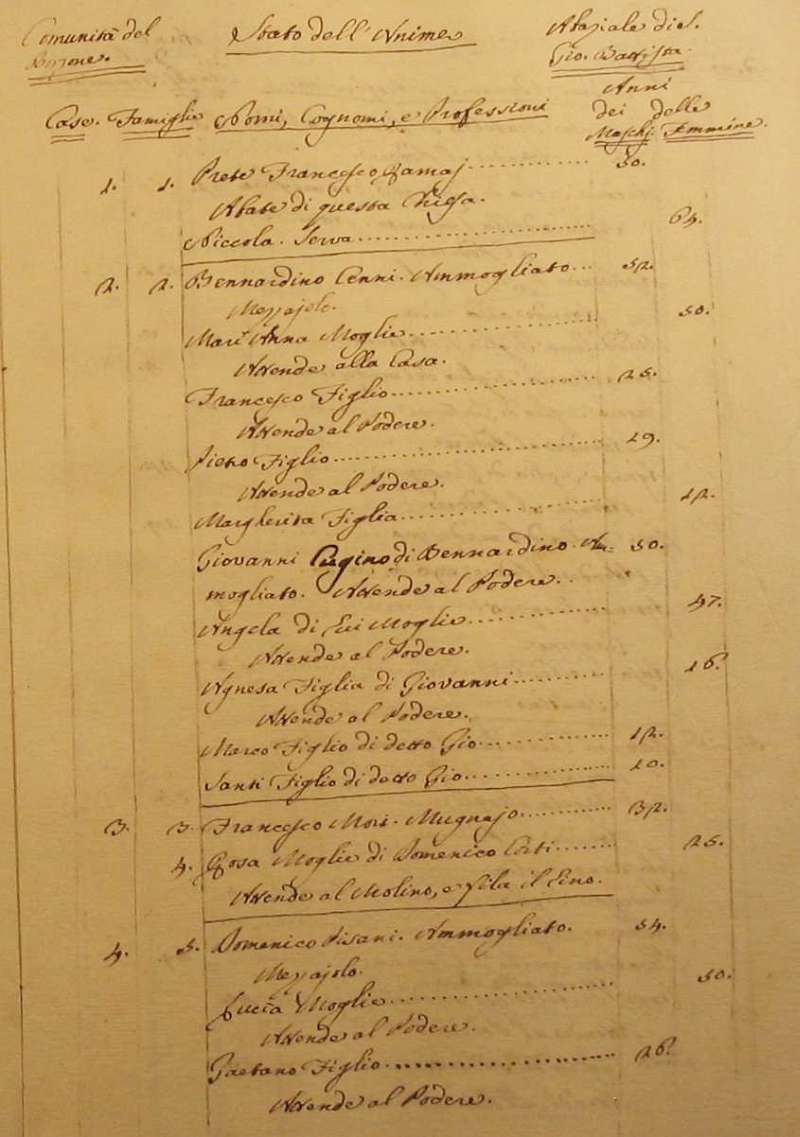 Comunità del Stato dell'Anime Abaziale di S.
Gio. Battista.
Anni
Case. Famiglie Nomi, Cognomi, e Professioni dei delle
Maschj. Femmine.
1. 1. Prete Francesco 50.
Abate di questa Chiesa.
Niccola. Serva 64.
2. 2. Bernardino Cenni. Ammogliato 52.
Mezzajolo.
Mari.ª Anna Moglie 50.
Attende alla Casa.
Francesco Figlio 25.
Attende al Podere.
Pietro Figlio 19.
Attende al Podere.
Margherita Figlia 12.
Giovanni Cugino di Bernardino. Am= 50.
mogliato. Attende al Podere.
Angela di Lui Moglie 47.
Attende al Podere.
Agnesa Figlia di Giovanni 16.
Attende al Podere.
Marco Figlio di detto Gio. 12.
Santi Figlio di detto Gio. 10.
3. 3. Francesco Mori. Mugnajo 32.
4. Rosa Moglie di Domenico Corti 25.
Attende al Molino, e fila il Lino.
4. 5. Domenico Pisani. Ammogliato. 54.
Mezzajolo.
Lucia Moglie 50.
Attende al Podere.
Gaetano Figlio 26.
Attende al Podere.